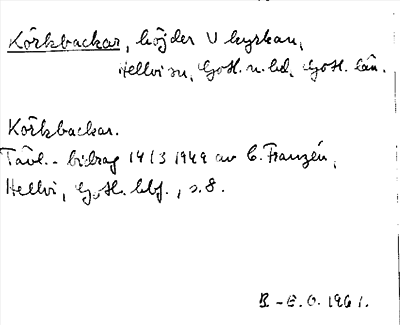 Körkbackar, höjder V kyrkan,
Hellvi sn, Gotl. n. hd, Gotl. län.
Körkbackar.
Tävl.-bidrag 14/3 1949 av C. Franzén,
Hellvi, Gotl. hbf., s. 8.
B.-E.O. 1961.